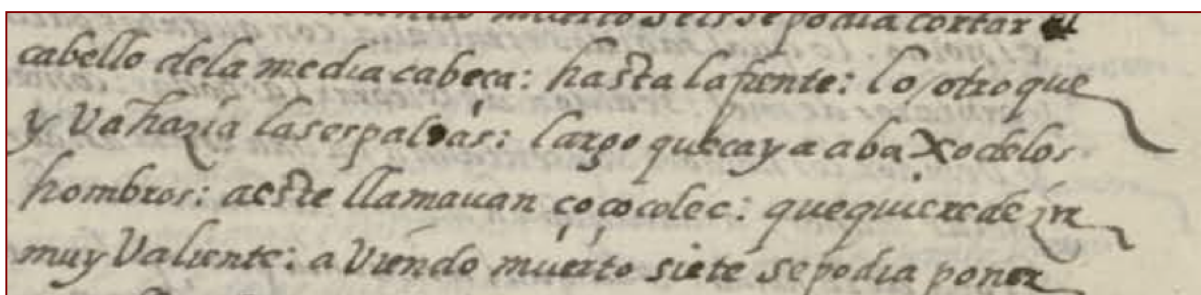 muerto seis se podia cortar el
cabello dela media cabeça: hasta la frente: lo otro que
y va hazia las espaldas: largo que caya abaxo delos
hombros: a este llamavan çocòcolec: que quiere dezir
muy valiente: a viendo muerto siete se podia poner